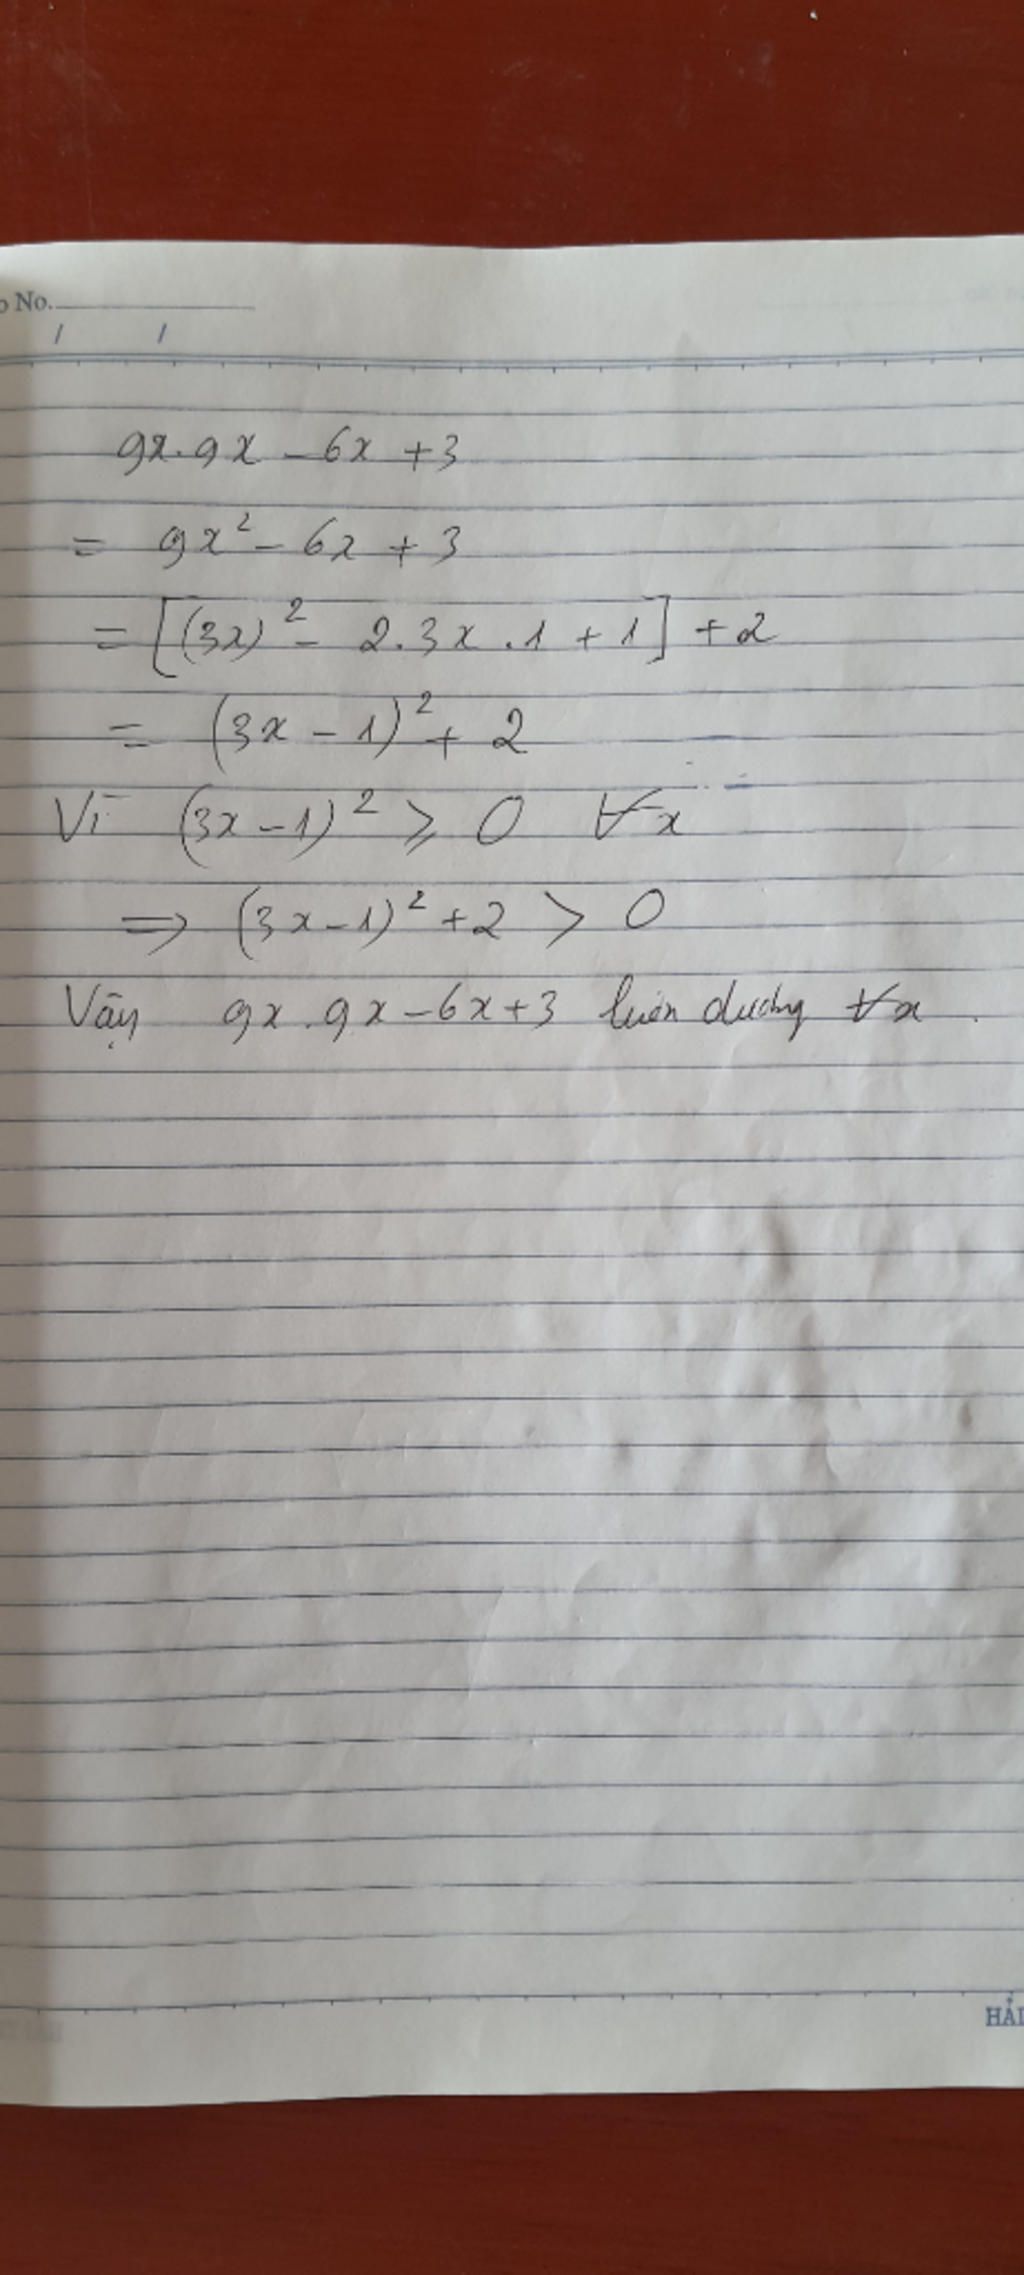 No.
/ /
9x.9x - 6x + 3
= 9x² - 6x + 3
= [(3x)² - 2.3x.1 + 1] + 2
= (3x - 1)² + 2
Vì (3x - 1)² ⩾ 0 ∀x
⇒ (3x - 1)² + 2 > 0
Vậy 9x.9x - 6x + 3 luôn dương ∀x.